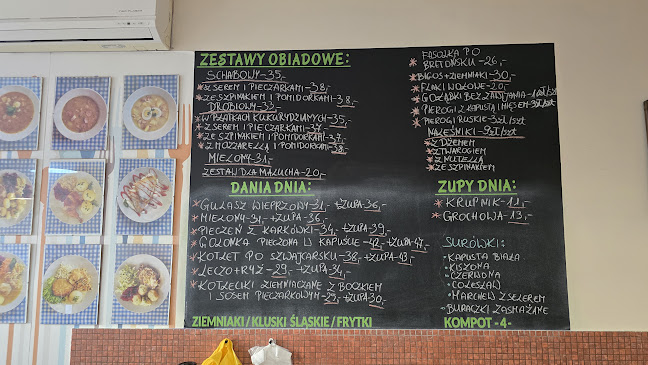 ZESTAWY OBIADOWE:
SCHABOWY-35,-
*Z SEREM I PIECZARKAMI-38,-
*ZE SZPINAKIEM I POMIDORKAMI-38,-
DROBIOWY-33,-
*W PŁATKACH KUKURYDZIANYCH-35,-
*Z SEREM I PIECZARKAMI-37,-
*ZE SZPINAKIEM I POMIDORKAMI-37,-
*Z MOZZARELLĄ I POMIDORKAMI-38,-
MIELONY-31,-
ZESTAW DLA MALUCHA-20,-
DANIA DNIA:
*GULASZ WIEPRZOWY-31,- +ZUPA-36,-
*MIELONY-31,- +ZUPA-36,-
*PIECZEŃ Z KARKÓWKI-34,- +ZUPA-39,-
*GOLONKA PIECZONA W KAPUŚCIE-42,- +ZUPA-47,-
*KOTLET PO SZWAJCARSKU-38,- +ZUPA-43,-
*LECZO+RYŻ-29,- +ZUPA-34,-
*KOTLECIKI ZIEMNIACZANE Z BOCZKIEM
I SOSEM PIECZARKOWYM-25,- +ZUPA30,-
ZIEMNIAKI / KLUSKI ŚLĄSKIE / FRYTKI
*FASOLKA PO
BRETOŃSKU-26,-
*BIGOS+ZIEMNIAKI-30,-
*FLAKI WOŁOWE-20,-
*GOŁĄBKI BEZ ZAWIJANIA-
*PIEROGI Z KAPUSTĄ I MIĘSEM-3zł/szt
*PIEROGI RUSKIE-3zł/szt
NALEŚNIKI-9zł/szt
*Z DŻEMEM
*Z TWAROGIEM
*Z NUTELLĄ
*ZE SZPINAKIEM
ZUPY DNIA:
*KRUPNIK-11,-
*GROCHOWA-13,-
SURÓWKI:
•KAPUSTA BIAŁA
•KISZONA
•CZERWONA
•COLESŁAW
•MARCHEW Z SELEREM
•BURACZKI ZASMAŻANE
KOMPOT -4-